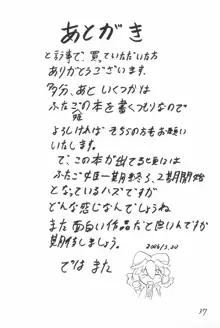 あとがき
と言う事で、買っていただいた方
ありがとうございます。
多分、あといくつかは
ふたご姫の本を書くつもりなので
よろしければそちらの方もお願い
いたします。
で、この本が出てる頃には
ふたご姫一期終了、2期開始
となっているハズですが
どんな感じなんでしょうね
また面白い作品だと良いんですが
期待しましょう。
2006/3.20
ではまた
37